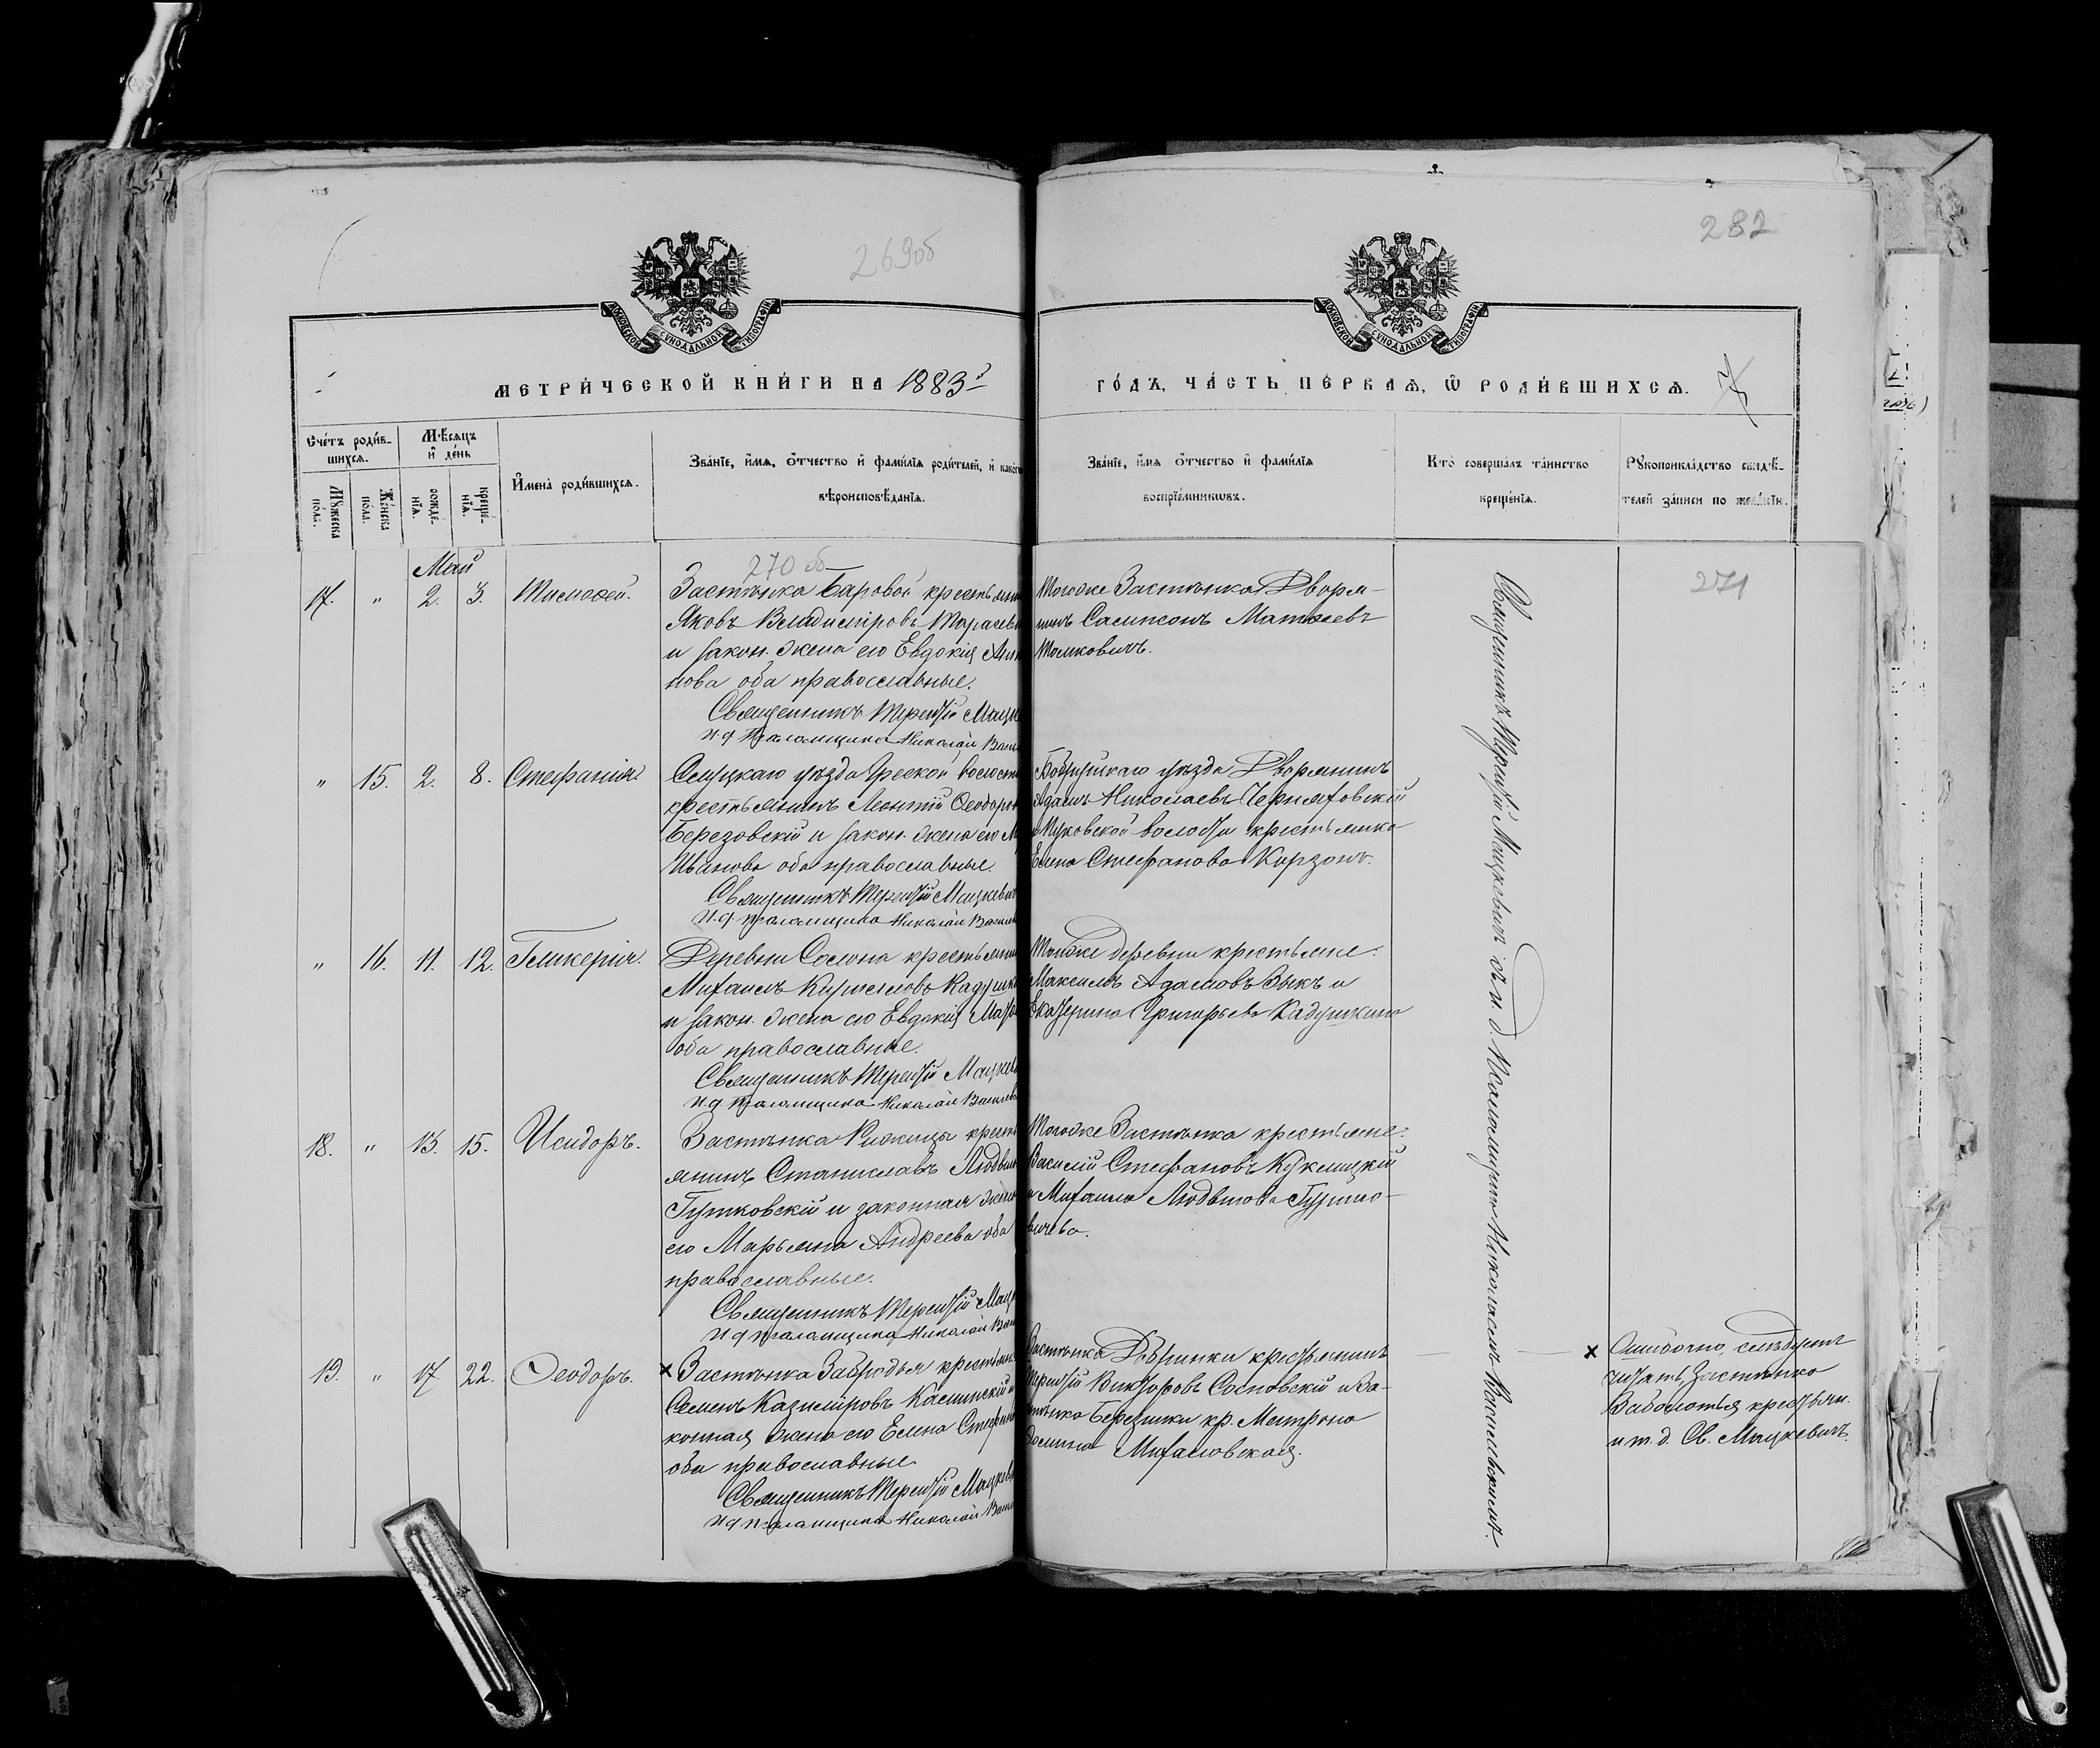 269об
282
МОСКОВСКОЙ СѴНОДАЛЬНОЙ ТИПОГРАФІИ
МОСКОВСКОЙ СѴНОДАЛЬНОЙ ТИПОГРАФІИ
МЕТРИ́ЧЕСКОЙ КНИ́ГИ НА 1883й
ГО́ДЪ, ЧА́СТЬ ПЕ́РВАѦ, Ѽ РОДИ́ВШИХСѦ.
7
Сче́тъ роди́в-
шихсѧ.
Мꙋ́жеска по́ла.
Же́нска по́ла.
Мѣ́сѧцъ и҆ де́нь
рожде́-
нїѧ.
креще́-
нїѧ.
И҆мена̀ роди́вшихсѧ.
Зва́нїе, и҆́мѧ, ѻ҆́тчество и҆ фами́лїѧ роди́телей, и҆ како́гѡ
вѣроисповѣ́данїѧ.
Зва́нїе, и҆́мѧ ѻ҆́тчество и҆ фами́лїѧ
воспрїе́мникѡвъ.
Кто̀ соверша́лъ та́инство
креще́нїѧ.
Рꙋкоприкла́дство свидѣ́-
телей за́писи по жела́нїю.
Май
270 об
271
17. " 2. 3. Тимофей.
Застѣнка Баровой крестьянин
Яковъ Владиміровъ Тарасеви
и закон. жена его Евдокія Ант
нова оба православные.
Священникъ Терентій Мацке
И. д. псаломщика Николай Васи
Тогоже Застѣнка Дворя-
нинъ Сампсонъ Матѳеевъ
Томковичъ.
" 15. 2. 8. Стефанія.
Слуцкаго уѣзда Греской волости
крестьянинъ Леонтій Ѳеодоров
Березовскій и закон. жена его М
Иванова оба православные.
Священникъ Терентій Мацкевич
И. д. псаломщика Николай Васил
Бобруйскаго уѣзда Дворянинъ
Адамъ Николаевъ Черняховскій
волости крестьянка
Елена Стефанова Корзонъ.
" 16. 11. 12. Гликерія.
Деревни Солона крестьянин
Михаилъ Кирилловъ Кадушки
и закон. жена его Евдокія
оба православные.
Священникъ Терентій Мацкев
И. д. псаломщика Николай Василев
Тойже деревни крестьяне:
Максимъ Адамовъ Зыкъ и
Екатерина Григорьева Кадушкина
18. " 13. 15. Исидоръ.
Застѣнка крест
янинъ Станиславъ Людви
Гутковскій и законная жена
его Марьяна Андреева оба
православные.
Священникъ Терентій Мацк
И д псаломщика Николай Васи
Тогоже Застѣнка крестьяне:
Василій Стефановъ Куклицкій
и Михалина Людвигова
вичева.
19. " 17. 22. Ѳеодоръ.
× Застѣнка Забродья крестьян
Семенъ Казиміровъ Касинскій и
конная жена его Елена Стефан
оба православные.
Священникъ Терентій Мацкеви
И д псаломщика Николай Васи
Застѣнка Добринки крестьянинъ
Терентій Викторовъ Сосновскій и За-
стѣнка Березинки кр. Матрона
Михаловская.
Священникъ Терентій Мацкевичъ съ и. д. Псаломщика Николаемъ Васильевскимъ.
× Ошибочно, слѣдуетъ
читать, Застѣнка
Заболотья крестьян.
и т. д. Св. Мацкевичъ.